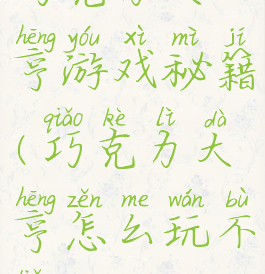 hēng yóu xì mì jí
亨游戏秘籍
qiǎo kè lì dà
(巧克力大
hēng zěn me wán bù
亨怎么玩不